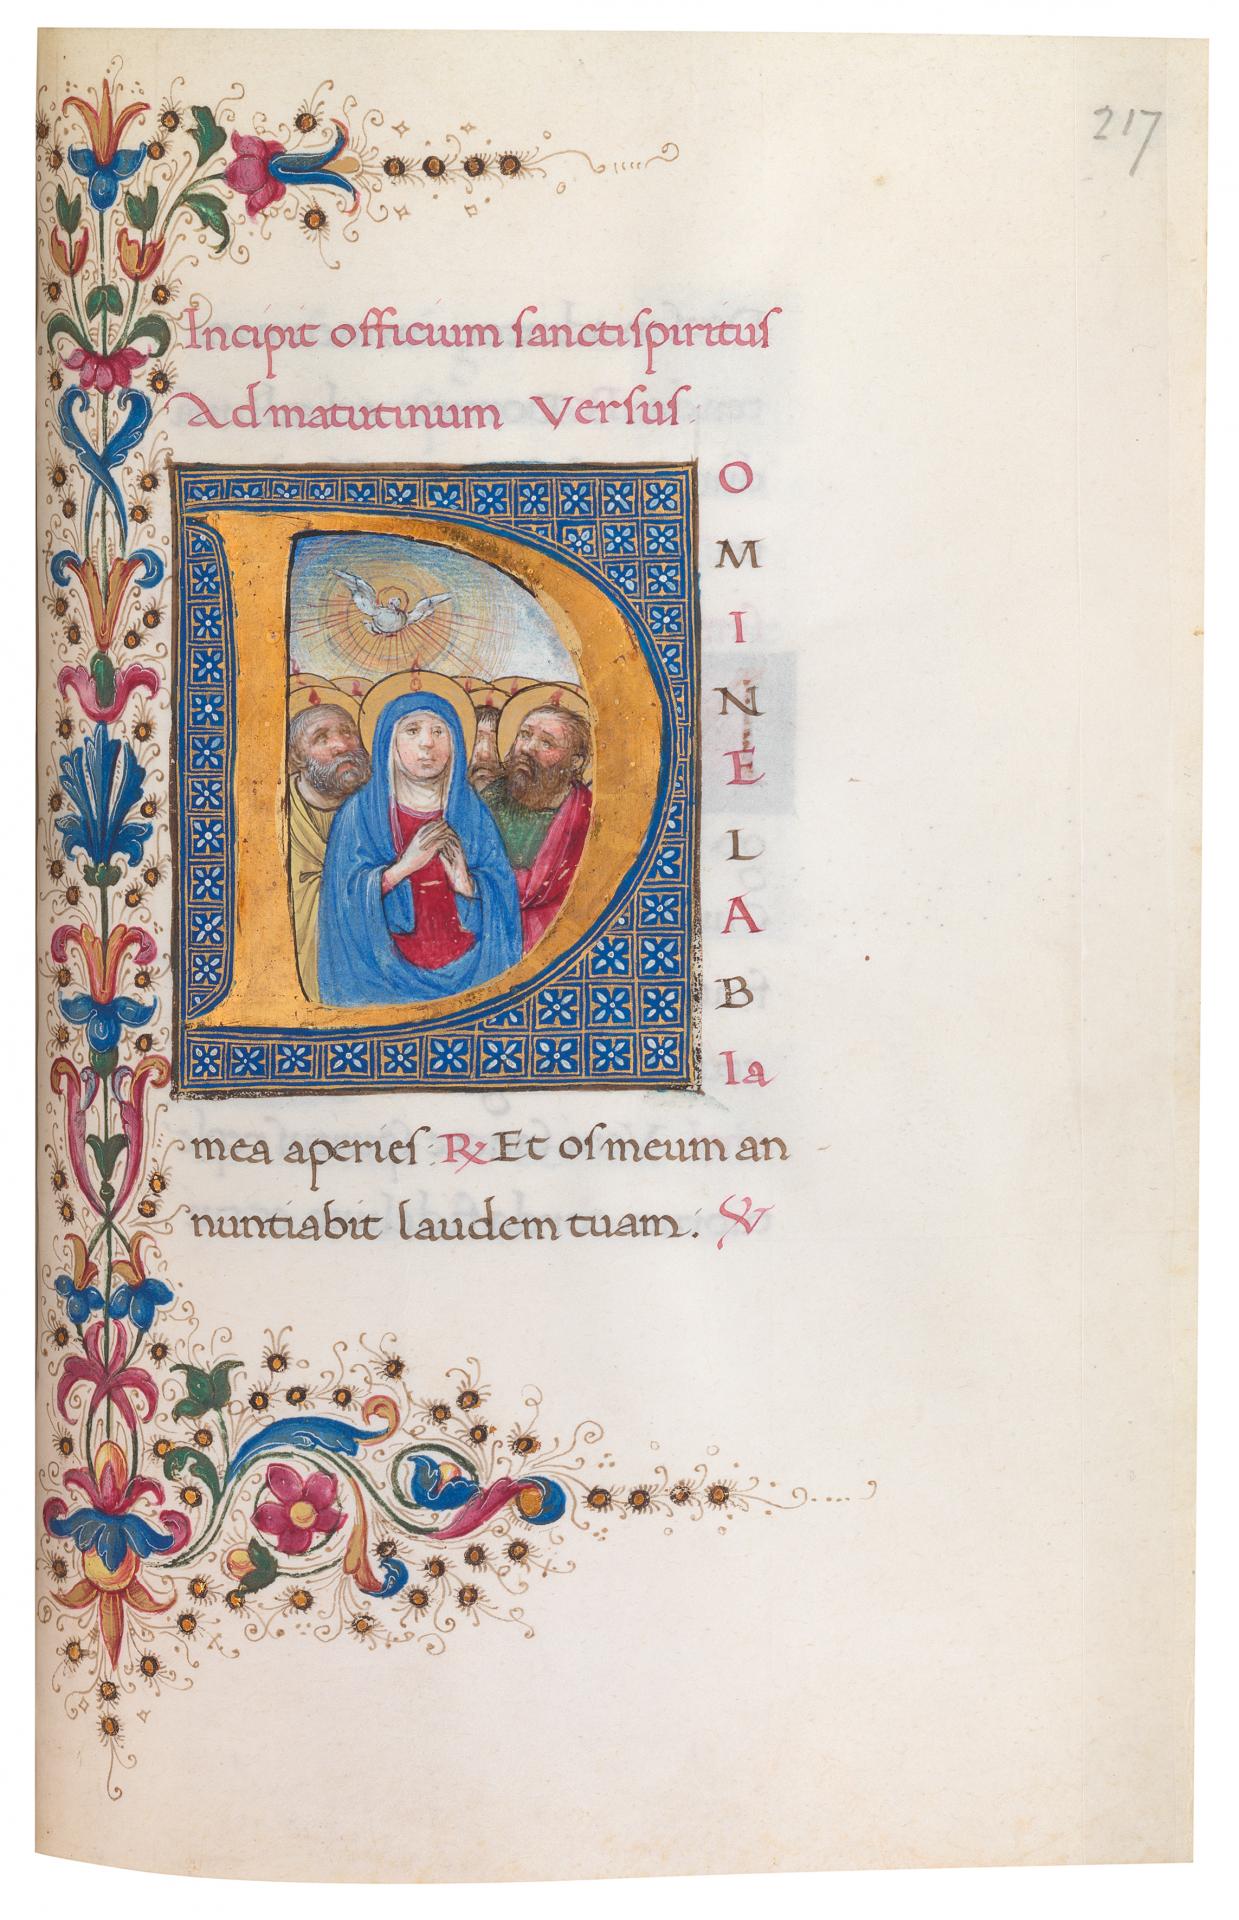 217
Incipit officium sancti spiritus
Ad matutinum Versus.
D
O
M
I
N
E
L
A
B
Ia
mea aperies ℟ Et os meum an
nuntiabit laudem tuam. ℣